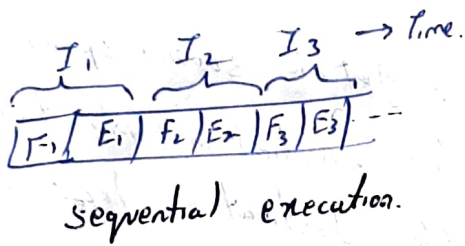 I1 I2 I3 → Time.
F1 E1 F2 E2 F3 E3 ---
sequential execution.